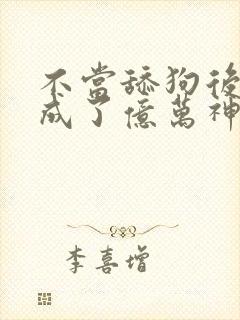 不當舔狗後
成了億萬神
李喜增